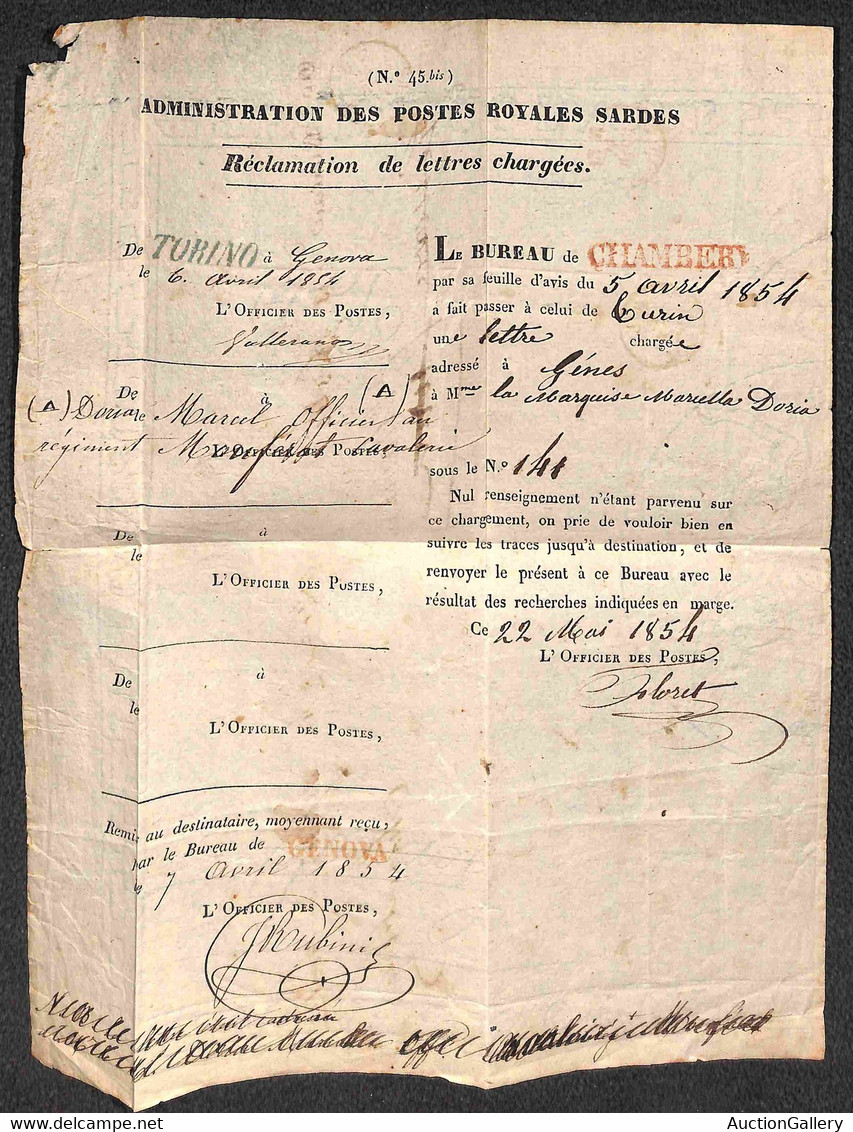 (N.º 45.bis)
ADMINISTRATION DES POSTES ROYALES SARDES
Réclamation de lettres chargées.
De TORINO à Genova
le 6. avril 1854
L'OFFICIER DES POSTES,
De à (A)
(A) Doria le Marcel officier au
régiment cavalerie
L'OFFICIER DES POSTES,
De à
le
L'OFFICIER DES POSTES,
De à
le
L'OFFICIER DES POSTES,
Remis au destinataire, moyennant reçu,
par le Bureau de GENOVA
le 7 avril 1854
L'OFFICIER DES POSTES,
Rubini
LE BUREAU de CHAMBERY
par sa feuille d'avis du 5 avril 1854
a fait passer à celui de Turin
une lettre chargée
adressé à Gênes
à Mme la Marquise Doria
sous le N.º 141
Nul renseignement n'étant parvenu sur
ce chargement, on prie de vouloir bien en
suivre les traces jusqu'à destination, et de
renvoyer le présent à ce Bureau avec le
résultat des recherches indiquées en marge.
Ce 22 Mai 1854
L'OFFICIER DES POSTES,
Floret
AuctionGallery